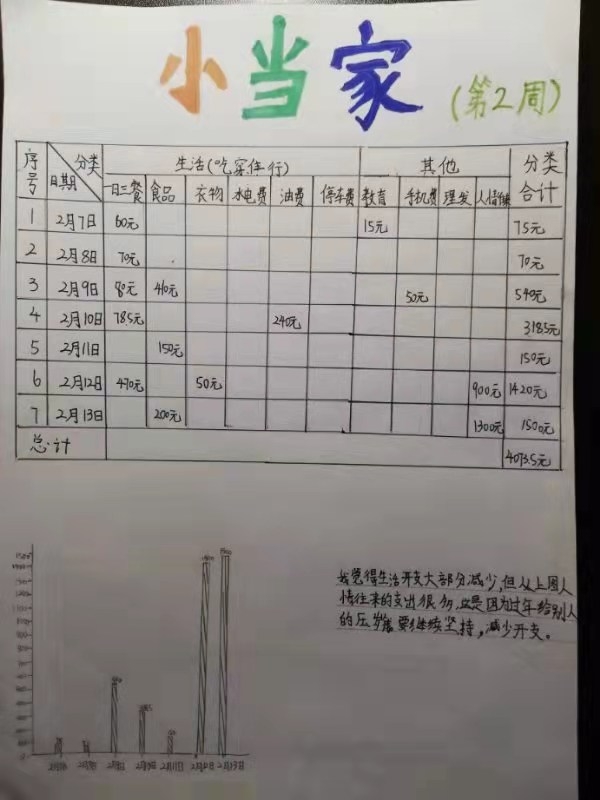 小当家
(第2周)
序号 分类 日期 生活(吃穿住行) 其他 分类合计
一日三餐 食品 衣物 水电费 油费 停车费 教育 手机费 理发
1 2月7日 60元 15元 75元
2 2月8日 70元 70元
3 2月9日 80元 410元 50元 540元
4 2月10日 78.5元 240元 318.5元
5 2月11日 150元 150元
6 2月12日 470元 50元 900元 1420元
7 2月13日 200元 1300元 1500元
总计 4073.5元
我觉得生活开支大部分减少,但从上图人
情往来的支出很多,这是因为过年给别人
的压岁钱,要继续坚持,减少开支。
2月11日 2月13日